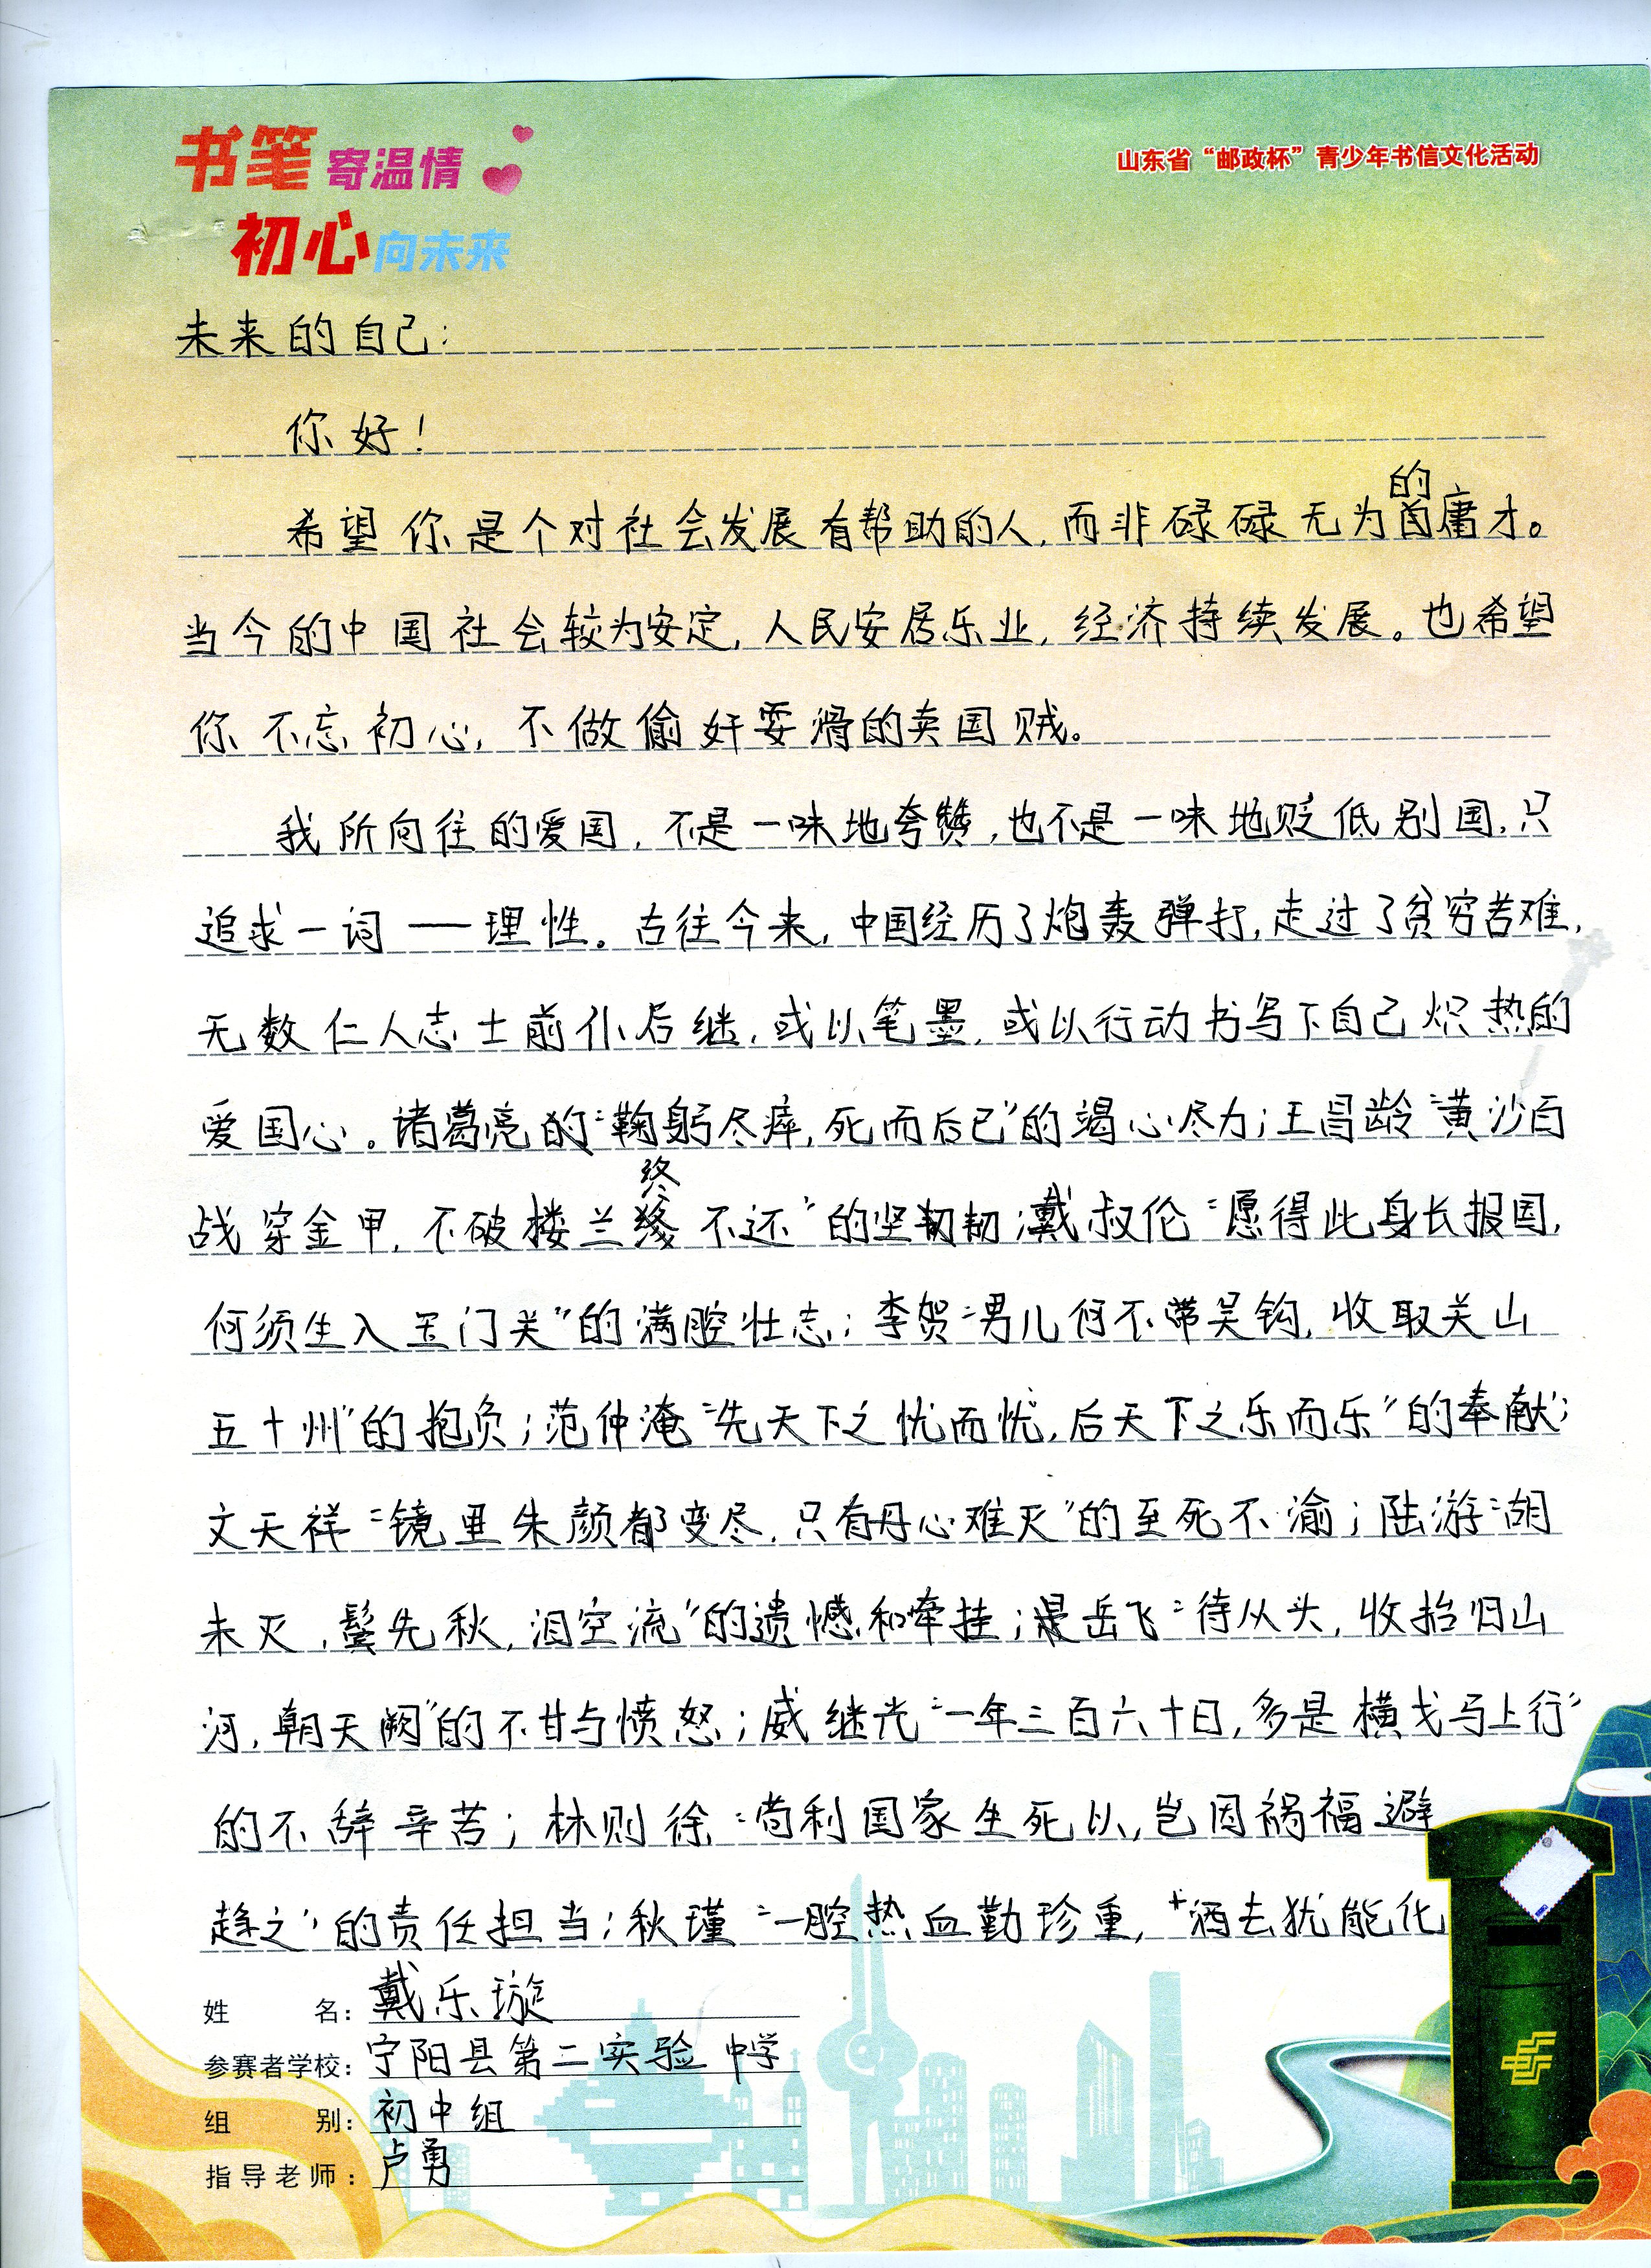 书笔寄温情
山东省“邮政杯”青少年书信文化活动
初心向未来
未来的自己:
你好!
希望你是个对社会发展有帮助的人,而非碌碌无为的庸才。
当今的中国社会较为安定,人民安居乐业,经济持续发展。也希望
你不忘初心,不做偷奸耍滑的卖国贼。
我所向往的爱国,不是一味地夸赞,也不是一味地贬低别国,只
追求一词——理性。古往今来,中国经历了炮轰弹打,走过了贫穷苦难,
无数仁人志士前仆后继,或以笔墨,或以行动书写下自己炽热的
爱国心。诸葛亮的“鞠躬尽瘁,死而后已”的竭心尽力;王昌龄“黄沙百
战穿金甲,不破楼兰终不还”的坚韧;戴叔伦“愿得此身长报国,
何须生入玉门关”的满腔壮志;李贺“男儿何不带吴钩,收取关山
五十州”的抱负;范仲淹“先天下之忧而忧,后天下之乐而乐”的奉献;
文天祥“镜里朱颜都变尽,只有丹心难灭”的至死不渝;陆游“胡
未灭,鬓先秋,泪空流”的遗憾和牵挂;岳飞“待从头,收拾旧山
河,朝天阙”的不甘与愤怒;戚继光“一年三百六十日,多是横戈马上行”
的不辞辛苦;林则徐“苟利国家生死以,岂因祸福避
趋之”的责任担当;秋瑾“一腔热血勤珍重,洒去犹能化
姓名:戴乐璇
参赛者学校:宁阳县第二实验中学
组别:初中组
指导老师:卢勇